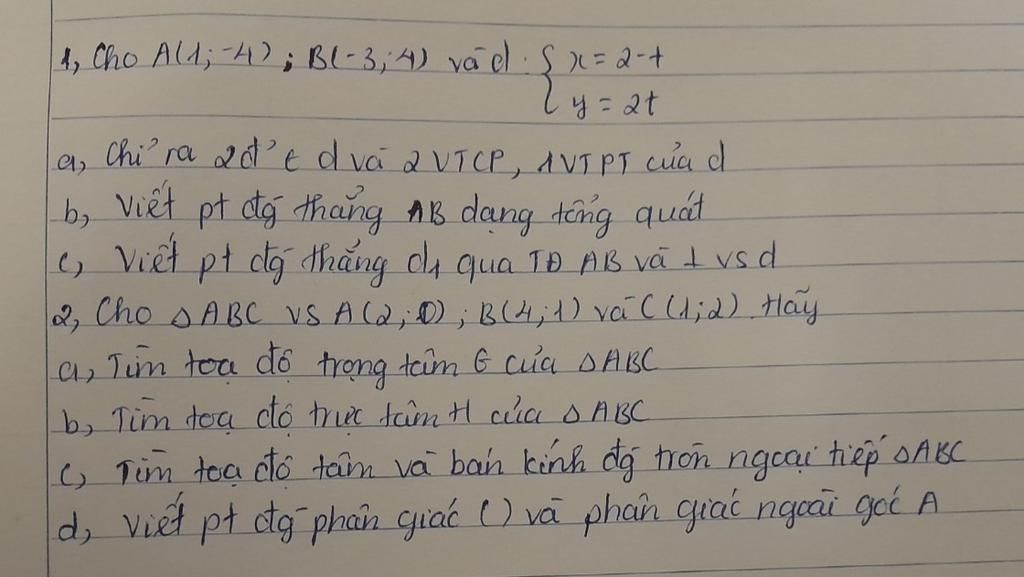 1, Cho A(1;-4); B(-3;4) và d: { x = 2-t
y = 2t
a, Chỉ ra 2đ' ∈ d và 2 VTCP, 1 VTPT của d
b, Viết pt đg thẳng AB dạng tổng quát
c, Viết pt đg thẳng d1 qua TĐ AB và ⊥ vs d
2, Cho △ABC vs A(2;0); B(4;1) và C(1;2). Hãy
a, Tìm toạ độ trọng tâm G của △ABC
b, Tìm toạ độ trực tâm H của △ABC
c, Tìm toạ độ tâm và bán kính đg tròn ngoại tiếp △ABC
d, Viết pt đg phân giác () và phân giác ngoài góc A